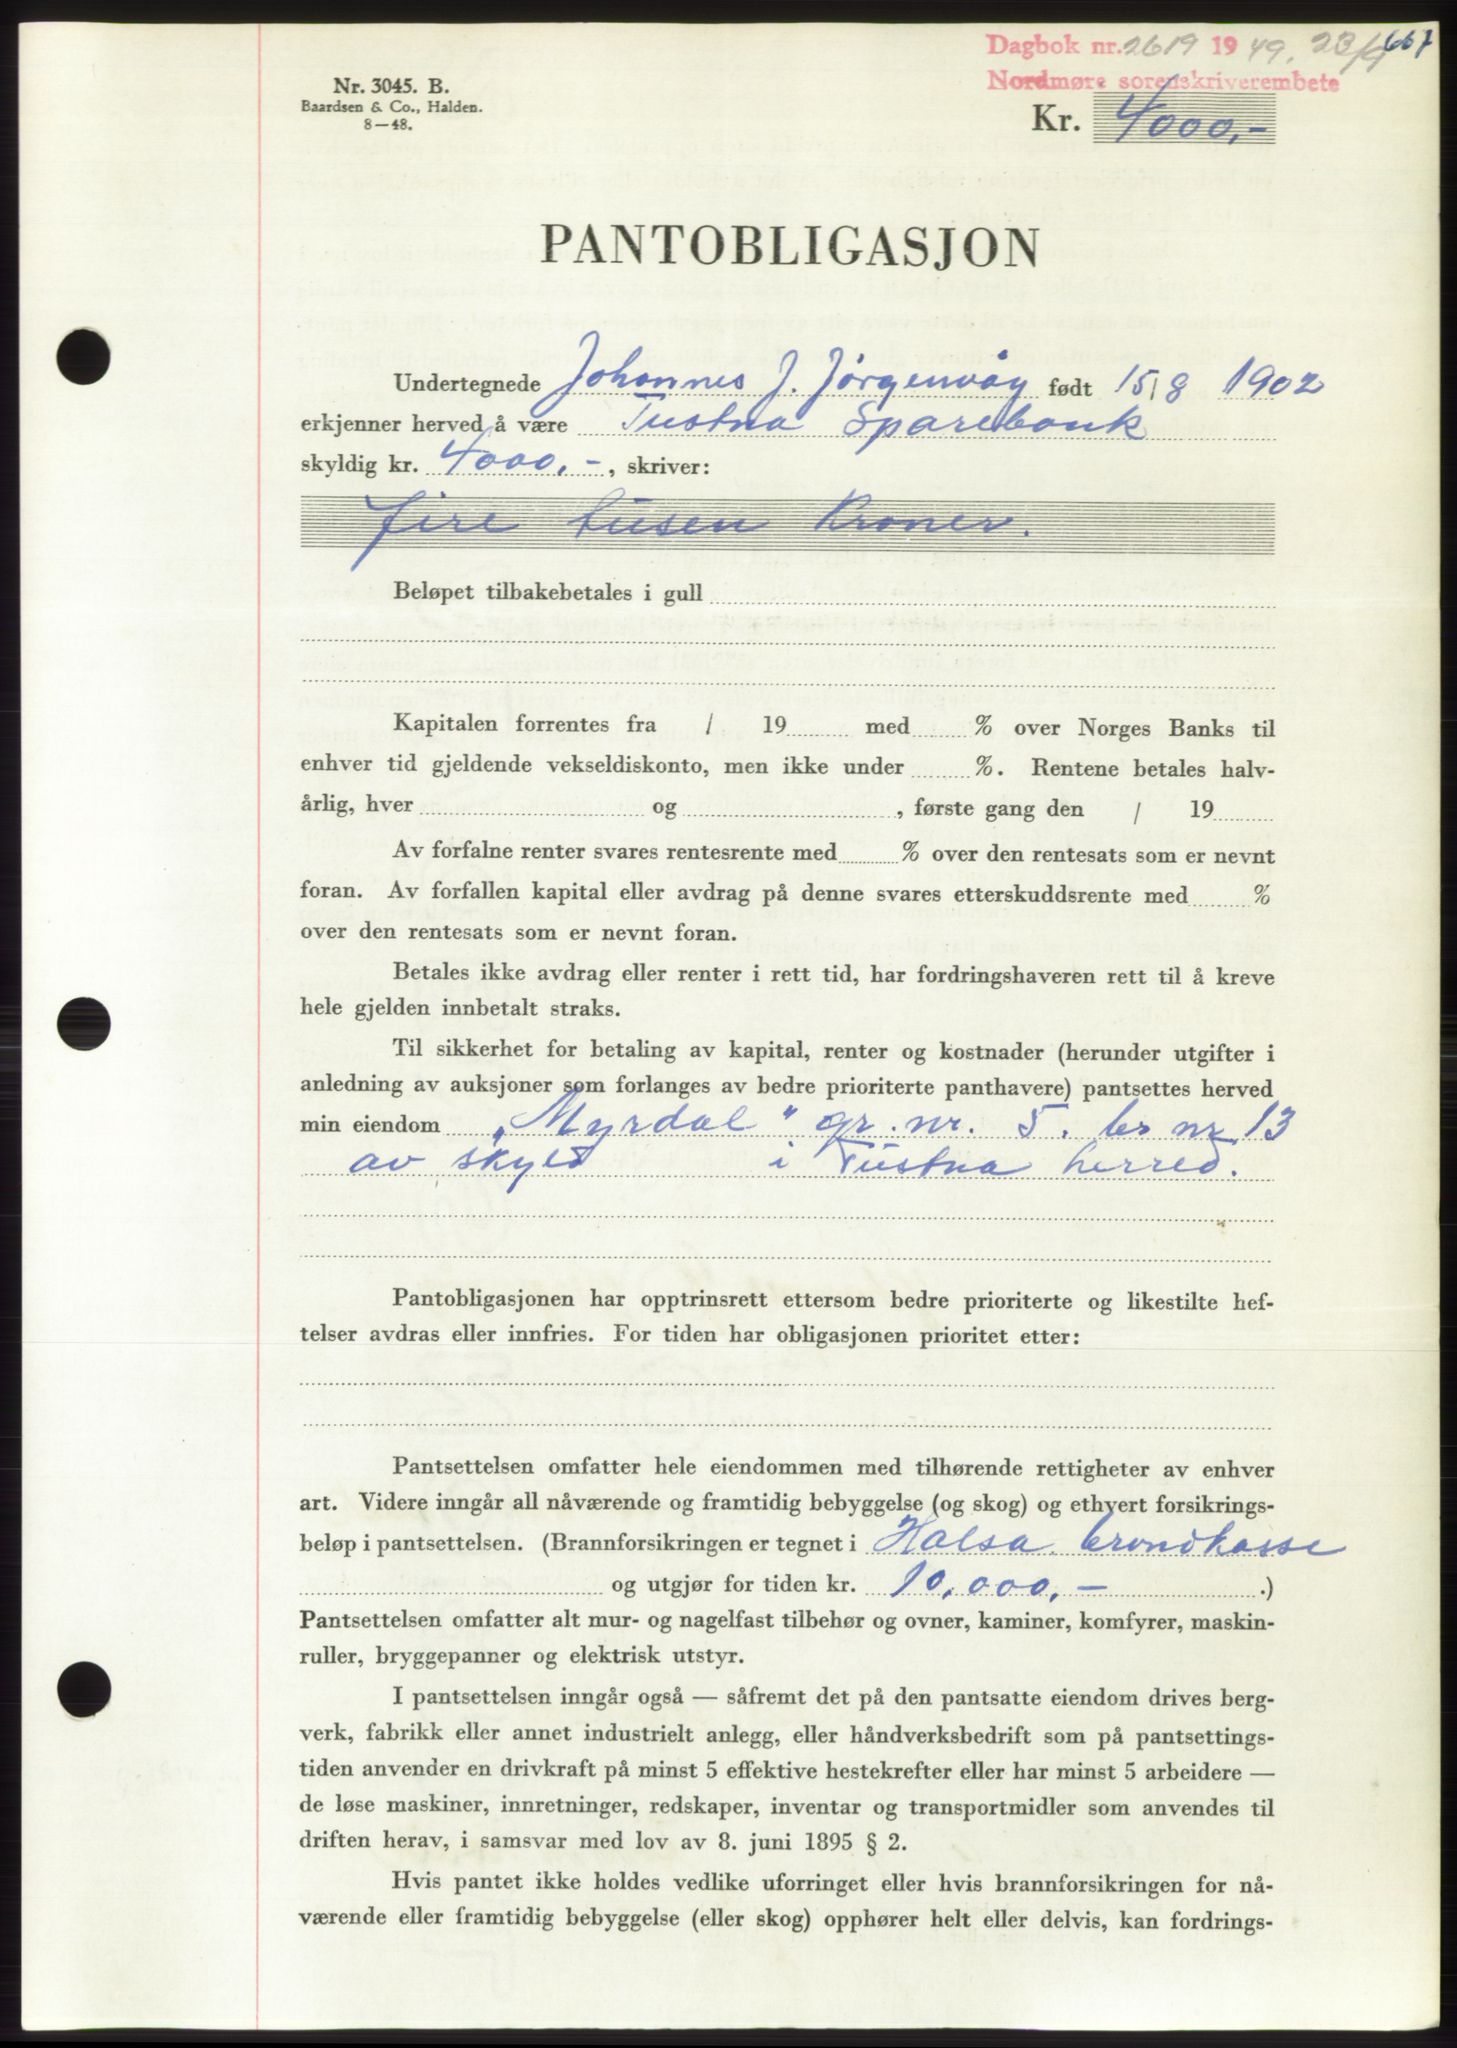 Dagbok nr. 2619 1949. 23/9 667
Nordmøre sorenskriverembete
Nr. 3045. B.
Baardsen & Co., Halden.
8—48.
Kr. 4000,-
PANTOBLIGASJON
Undertegnede Johannes J. Jørgenvåg født 15/8 1902
erkjenner herved å være Tustna Sparebank
skyldig kr. 4000,-, skriver:
fire tusen Kroner.
Beløpet tilbakebetales i gull
Kapitalen forrentes fra / 19 med % over Norges Banks til
enhver tid gjeldende vekseldiskonto, men ikke under %. Rentene betales halv-
årlig, hver og , første gang den / 19
Av forfalne renter svares rentesrente med % over den rentesats som er nevnt
foran. Av forfallen kapital eller avdrag på denne svares etterskuddsrente med %
over den rentesats som er nevnt foran.
Betales ikke avdrag eller renter i rett tid, har fordringshaveren rett til å kreve
hele gjelden innbetalt straks.
Til sikkerhet for betaling av kapital, renter og kostnader (herunder utgifter i
anledning av auksjoner som forlanges av bedre prioriterte panthavere) pantsettes herved
min eiendom „Myrdal" gr. nr. 5. br nr 13
av skyld i Tustna herred.
Pantobligasjonen har opptrinsrett ettersom bedre prioriterte og likestilte hef-
telser avdras eller innfries. For tiden har obligasjonen prioritet etter:
Pantsettelsen omfatter hele eiendommen med tilhørende rettigheter av enhver
art. Videre inngår all nåværende og framtidig bebyggelse (og skog) og ethvert forsikrings-
beløp i pantsettelsen. (Brannforsikringen er tegnet i Halsa brandkasse
og utgjør for tiden kr. 10,000,- .)
Pantsettelsen omfatter alt mur- og nagelfast tilbehør og ovner, kaminer, komfyrer, maskin-
ruller, bryggepanner og elektrisk utstyr.
I pantsettelsen inngår også — såfremt det på den pantsatte eiendom drives berg-
verk, fabrikk eller annet industrielt anlegg, eller håndverksbedrift som på pantsettings-
tiden anvender en drivkraft på minst 5 effektive hestekrefter eller har minst 5 arbeidere —
de løse maskiner, innretninger, redskaper, inventar og transportmidler som anvendes til
driften herav, i samsvar med lov av 8. juni 1895 § 2.
Hvis pantet ikke holdes vedlike uforringet eller hvis brannforsikringen for nå-
værende eller framtidig bebyggelse (eller skog) opphører helt eller delvis, kan fordrings-